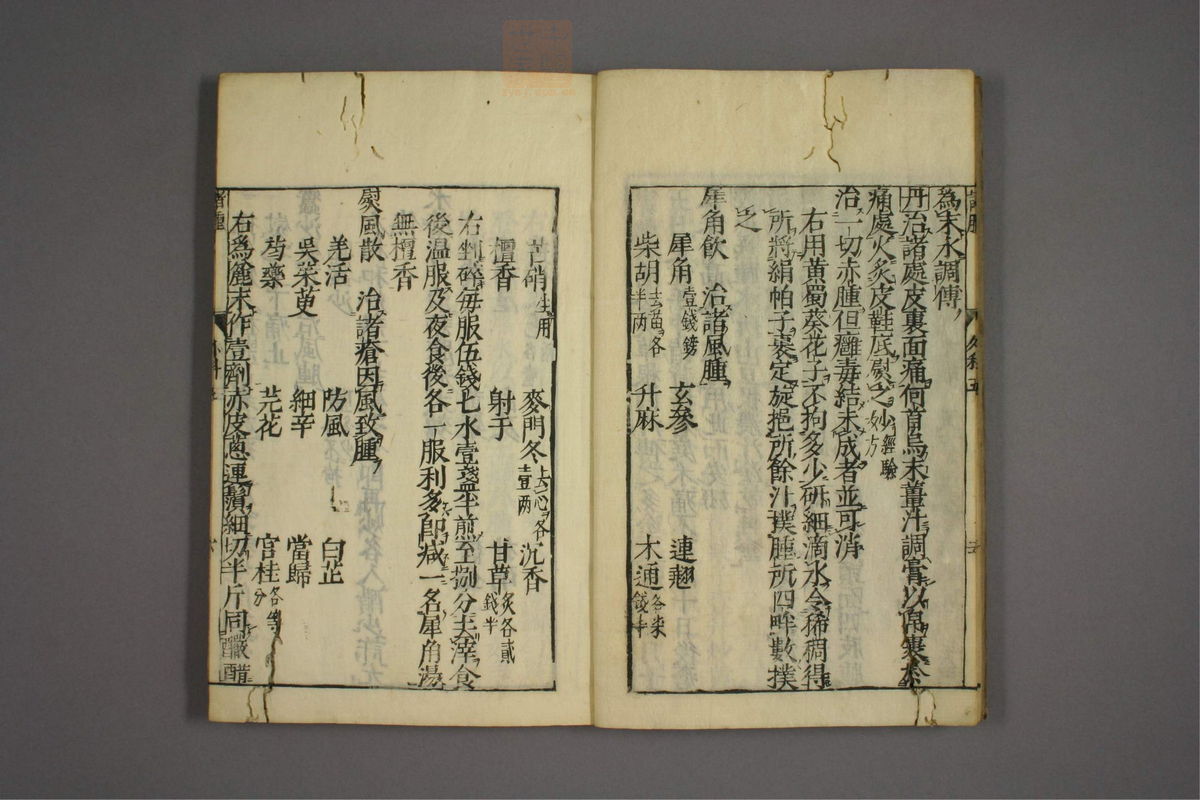 為末水調傅
丹治諸處皮裏面痛何首烏末薑汁調膏以帛裹
痛處火炙皮鞋底尉之妙經驗方
治一切赤腫但癰毒結未成者並可消
右用黃蜀葵花子不拘多少研細滴水令稀稠得
所將絹帕子裹定旋挹所餘汁撲腫所四畔數撲
之
犀角飲 治諸風腫
犀角壹錢鎊 玄參 連翹
柴胡去苗各半兩 升麻 木通
芒硝生用 麥門冬去心各壹兩 沉香
檀香 射干 甘草炙各貳錢半
右剉碎每服伍錢七水壹盞半煎至捌分去滓食
後温服及夜食後各一服利多即减一名犀角湯
無檀香
熨風散 治諸瘡因風致腫
羌活 防風 白芷
吳茱萸 細辛 當歸
芍藥 芫花 官桂各等分
右爲麄末作壹劑赤皮葱連鬚細切半斤同釅醋